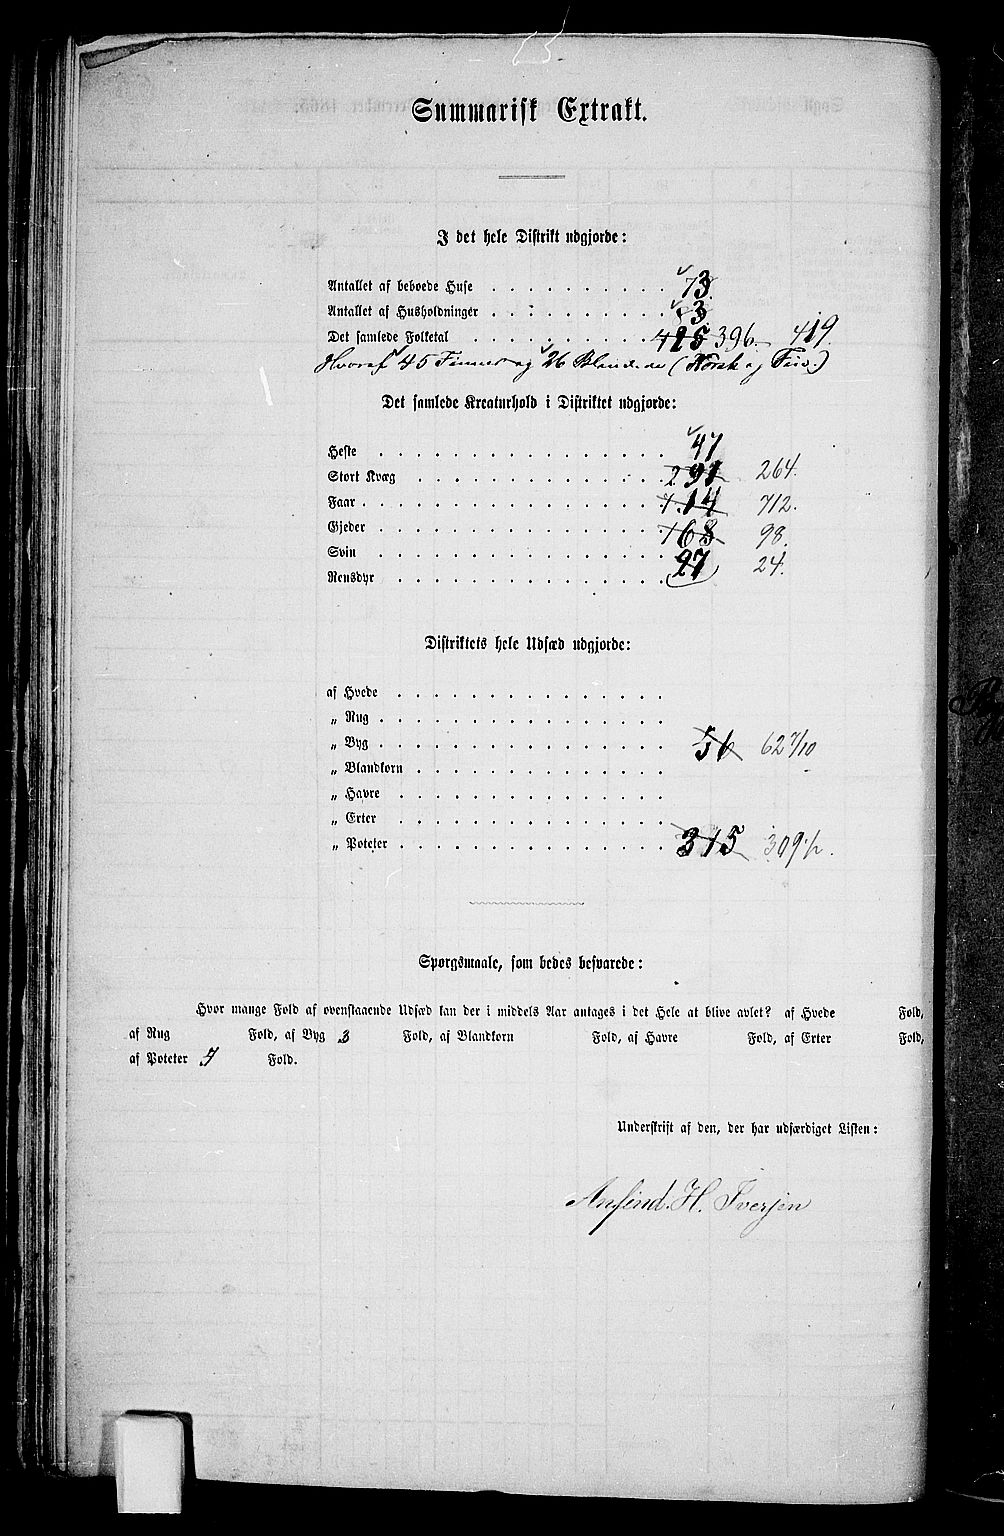 Summarisk Extrakt.
I det hele Distrikt udgjorde:
Antallet af beboede Huse . . . . . . . . . . 73
Antallet af Husholdninger . . . . . . . . . . 73
Det samlede Folketal . . . . . . . . . . 425 396 419.
Hvoraf 45 Finner og 26 Blandede (Norsk og Fin.)
Det samlede Kreaturhold i Distriktet udgjorde:
Heste . . . . . . . . . . 47
Stort Kvæg . . . . . . . . . . 291 264.
Faar . . . . . . . . . . 714 712.
Gjeder . . . . . . . . . . 168 98.
Svin . . . . . . . . . . 27 24.
Rensdyr . . . . . . . . . .
Distriktets hele Udsæd udgjorde:
af Hvede . . . . . . . . . .
„ Rug . . . . . . . . . .
„ Byg . . . . . . . . . . 56 62 7/10
„ Blandkorn . . . . . . . . . .
„ Havre . . . . . . . . . .
„ Erter . . . . . . . . . .
„ Poteter . . . . . . . . . . 315 309 1/2.
Sporgsmaale, som bedes besvarede:
Hvor mange Fold af ovenstaaende Udsæd kan der i middels Aar antages i det Hele at blive avlet? af Hvede Fold,
af Rug Fold, af Byg 3 Fold, af Blandkorn Fold, af Havre Fold, af Erter Fold,
af Poteter 7 Fold.
Underskrift af den, der har udfærdiget Listen:
Anfind. H. Iversen